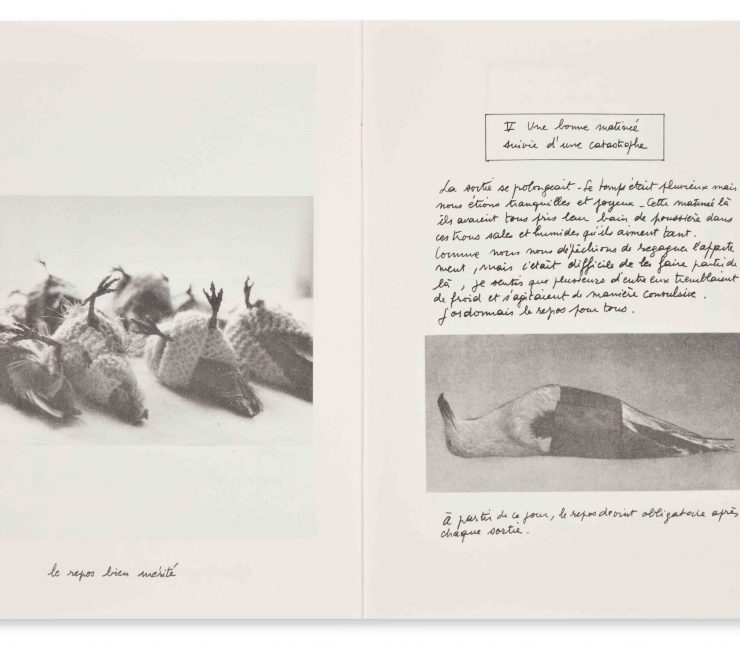 le repos bien mérité
V Une bonne matineé
suivie d'une catastrophe
La sortie se polongeait - Le temps était pluvieux mais
nous étions tranquilles et joyeux - Cette matinée là
ils avaient tous pris leur bain de poussière dans
ces trous sales et humides qu'ils aiment tant.
Comme nous nous dépêchions de regagner l'apparte
ment, mais c'était difficile de les faire partir de
là, je sentis que plusieurs d'entre eux tremblaient
de froid et s'agitaient de manière convulsive.
J'ordonnais le repos pour tous.
À partir de ce jour, le repos devint obligatoire après
chaque sortie.